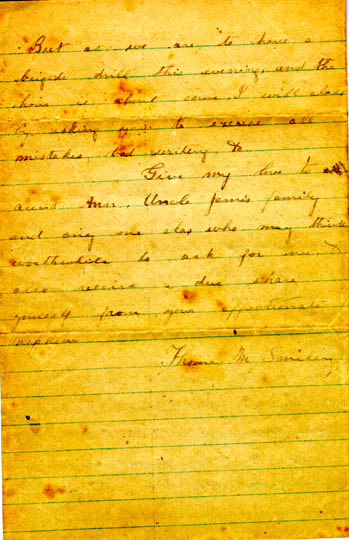 But as we are to have a
brigade drill this evening, and the
hour is about come I will close
by asking you to excuse all
mistakes, bad writing &c
Give my love to
aunt Ann, Uncle James family
and any one else who may think
worthwhile to ask for me, &
also receive a due share
yourself from your affectionate
nephew
Thomas M Smiley